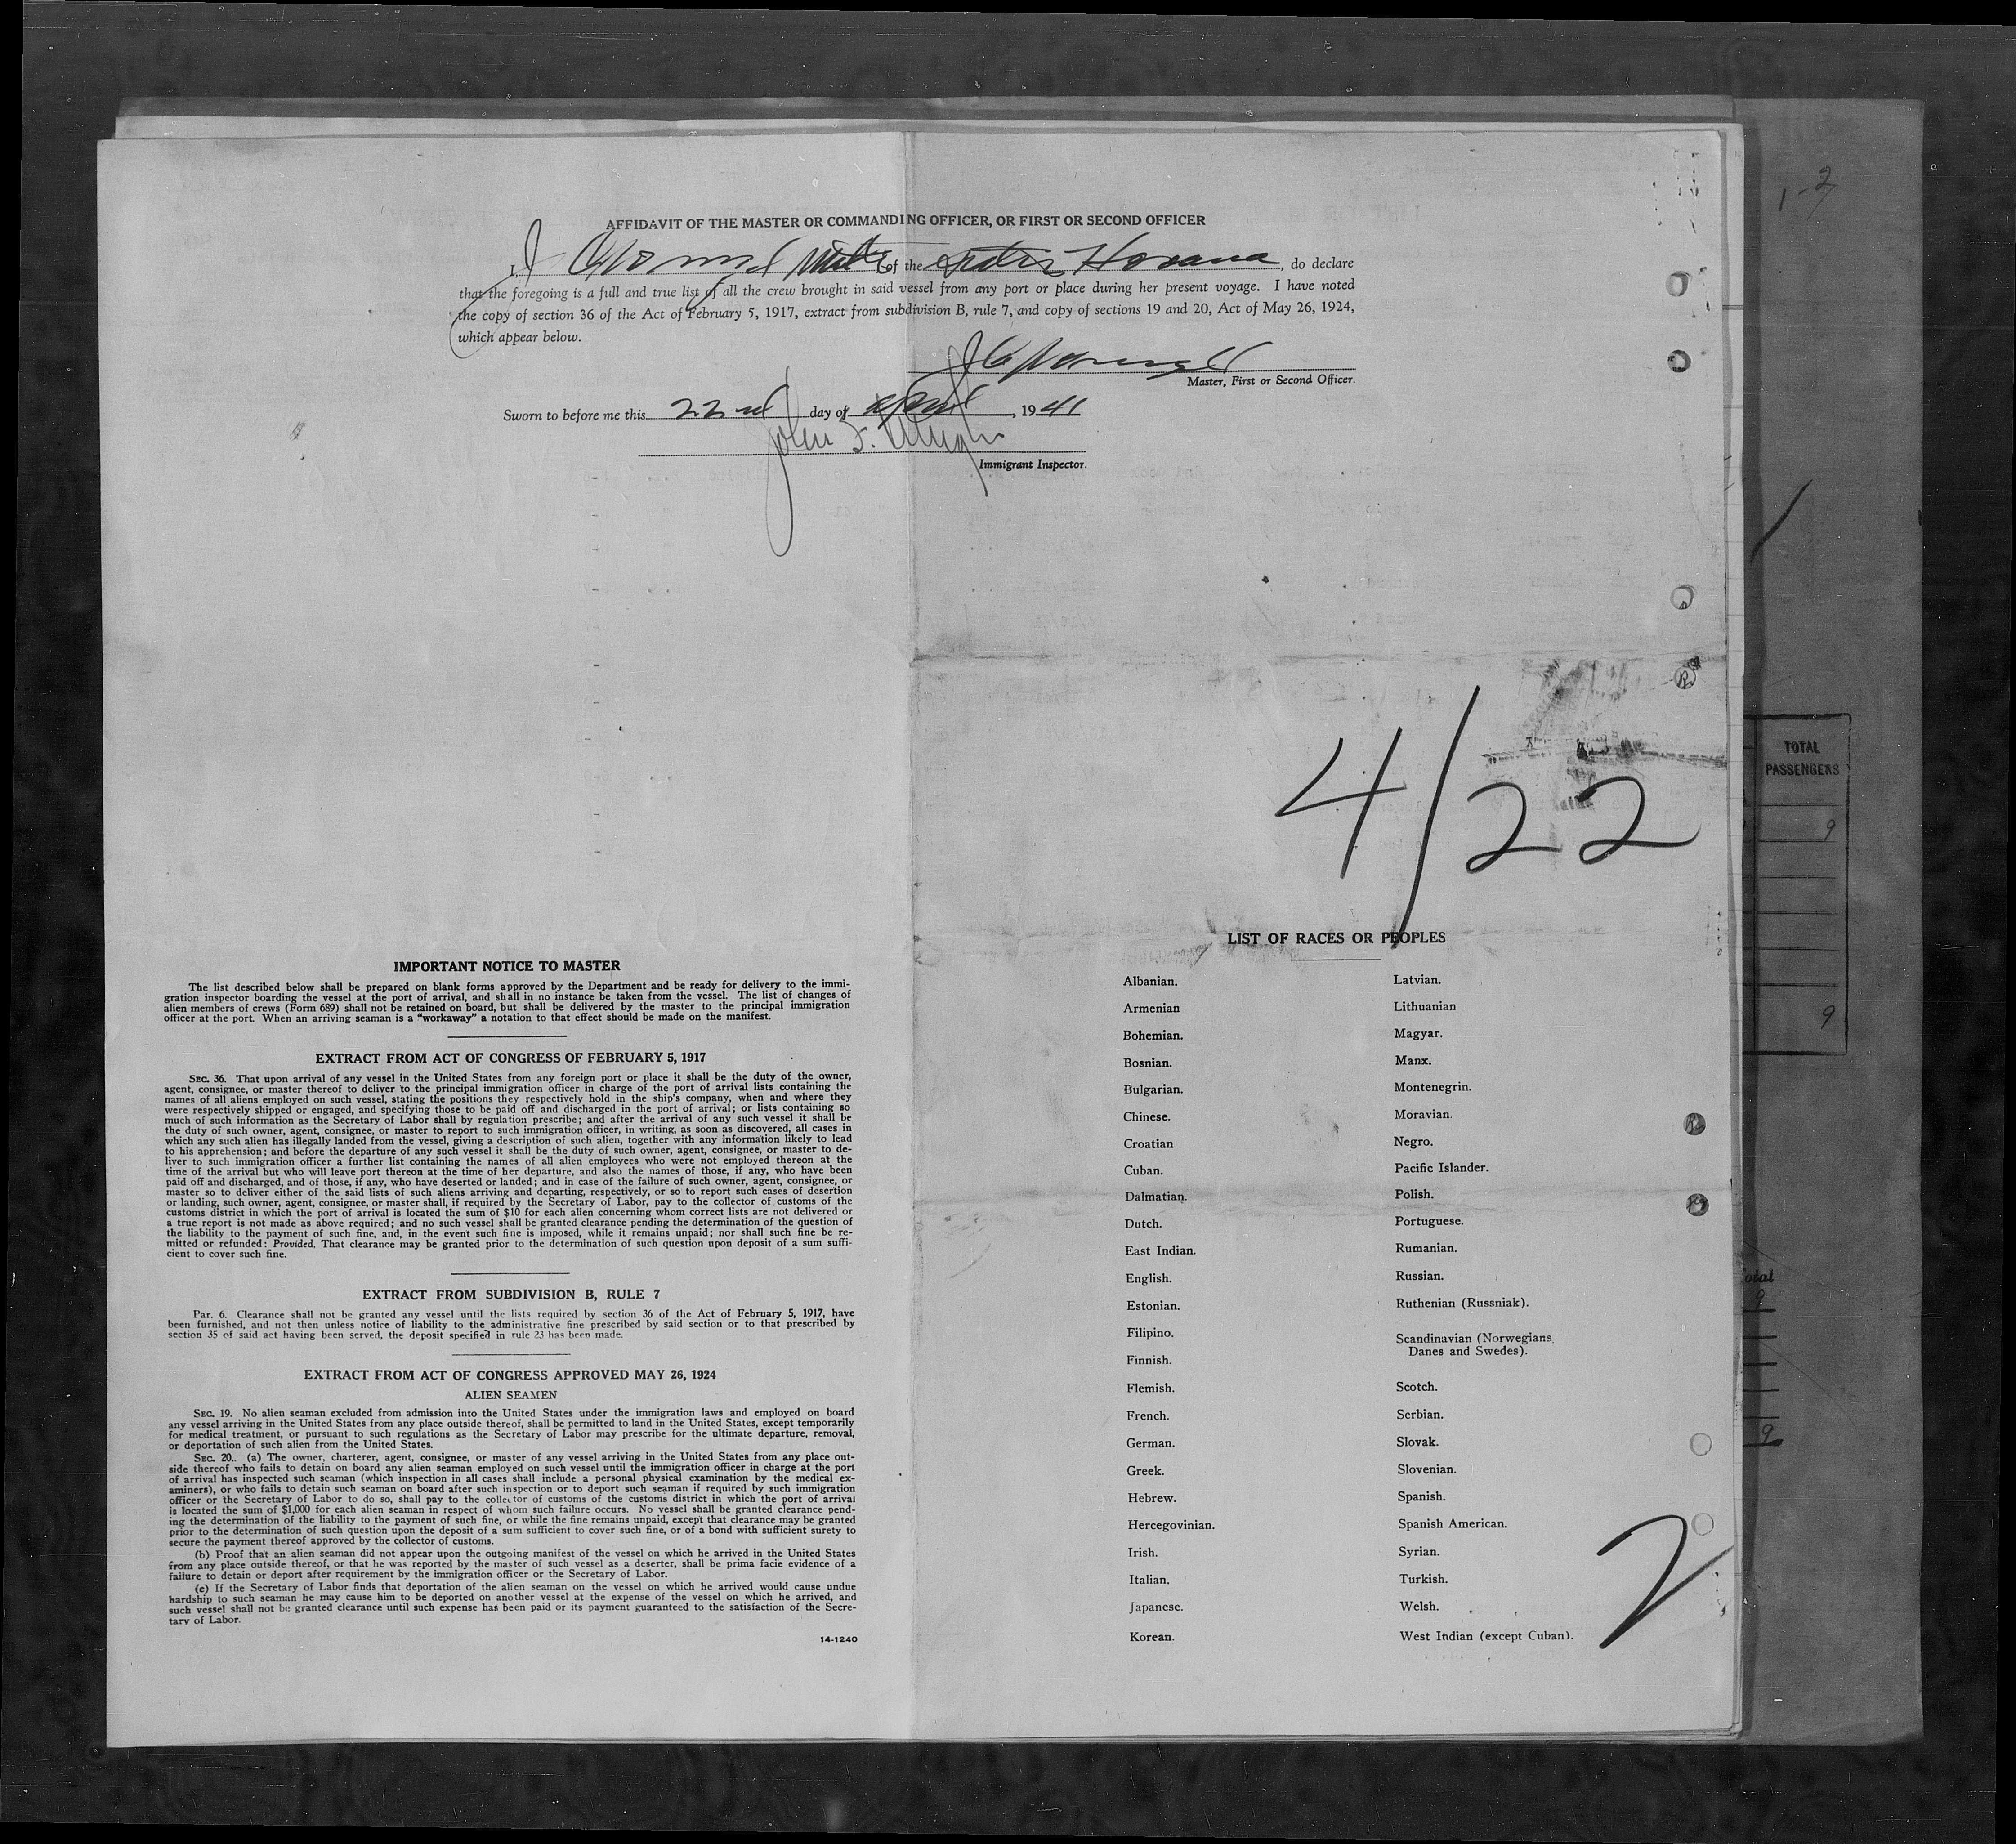 1-2
AFFIDAVIT OF THE MASTER OR COMMANDING OFFICER, OR FIRST OR SECOND OFFICER
I, of the Havana, do declare
that the foregoing is a full and true list of all the crew brought in said vessel from any port or place during her present voyage. I have noted
the copy of section 36 of the Act of February 5, 1917, extract from subdivision B, rule 7, and copy of sections 19 and 20, Act of May 26, 1924,
which appear below.
Master, First or Second Officer.
Sworn to before me this 22nd day of April, 1941
John F.
Immigrant Inspector.
4/22
TOTAL
PASSENGERS
9
9
IMPORTANT NOTICE TO MASTER
The list described below shall be prepared on blank forms approved by the Department and be ready for delivery to the immi-
gration inspector boarding the vessel at the port of arrival, and shall in no instance be taken from the vessel. The list of changes of
alien members of crews (Form 689) shall not be retained on board, but shall be delivered by the master to the principal immigration
officer at the port. When an arriving seaman is a "workaway" a notation to that effect should be made on the manifest.
EXTRACT FROM ACT OF CONGRESS OF FEBRUARY 5, 1917
SEC. 36. That upon arrival of any vessel in the United States from any foreign port or place it shall be the duty of the owner,
agent, consignee, or master thereof to deliver to the principal immigration officer in charge of the port of arrival lists containing the
names of all aliens employed on such vessel, stating the positions they respectively hold in the ship's company, when and where they
were respectively shipped or engaged, and specifying those to be paid off and discharged in the port of arrival; or lists containing so
much of such information as the Secretary of Labor shall by regulation prescribe; and after the arrival of any such vessel it shall be
the duty of such owner, agent, consignee, or master to report to such immigration officer, in writing, as soon as discovered, all cases in
which any such alien has illegally landed from the vessel, giving a description of such alien, together with any information likely to lead
to his apprehension; and before the departure of any such vessel it shall be the duty of such owner, agent, consignee, or master to de-
liver to such immigration officer a further list containing the names of all alien employees who were not employed thereon at the
time of the arrival but who will leave port thereon at the time of her departure, and also the names of those, if any, who have been
paid off and discharged, and of those, if any, who have deserted or landed; and in case of the failure of such owner, agent, consignee, or
master so to deliver either of the said lists of such aliens arriving and departing, respectively, or so to report such cases of desertion
or landing, such owner, agent, consignee, or master shall, if required by the Secretary of Labor, pay to the collector of customs of the
customs district in which the port of arrival is located the sum of $10 for each alien concerning whom correct lists are not delivered or
a true report is not made as above required; and no such vessel shall be granted clearance pending the determination of the question of
the liability to the payment of such fine, and, in the event such fine is imposed, while it remains unpaid; nor shall such fine be re-
mitted or refunded: Provided, That clearance may be granted prior to the determination of such question upon deposit of a sum suffi-
cient to cover such fine.
EXTRACT FROM SUBDIVISION B, RULE 7
Par. 6. Clearance shall not be granted any vessel until the lists required by section 36 of the Act of February 5, 1917, have
been furnished, and not then unless notice of liability to the administrative fine prescribed by said section or to that prescribed by
section 35 of said act having been served, the deposit specified in rule 23 has been made.
EXTRACT FROM ACT OF CONGRESS APPROVED MAY 26, 1924
ALIEN SEAMEN
SEC. 19. No alien seaman excluded from admission into the United States under the immigration laws and employed on board
any vessel arriving in the United States from any place outside thereof, shall be permitted to land in the United States, except temporarily
for medical treatment, or pursuant to such regulations as the Secretary of Labor may prescribe for the ultimate departure, removal,
or deportation of such alien from the United States.
SEC. 20. (a) The owner, charterer, agent, consignee, or master of any vessel arriving in the United States from any place out-
side thereof who fails to detain on board any alien seaman employed on such vessel until the immigration officer in charge at the port
of arrival has inspected such seaman (which inspection in all cases shall include a personal physical examination by the medical ex-
aminers), or who fails to detain such seaman on board after such inspection or to deport such seaman if required by such immigration
officer or the Secretary of Labor to do so, shall pay to the collector of customs of the customs district in which the port of arrival
is located the sum of $1,000 for each alien seaman in respect of whom such failure occurs. No vessel shall be granted clearance pend-
ing the determination of the liability to the payment of such fine, or while the fine remains unpaid, except that clearance may be granted
prior to the determination of such question upon the deposit of a sum sufficient to cover such fine, or of a bond with sufficient surety to
secure the payment thereof approved by the collector of customs.
(b) Proof that an alien seaman did not appear upon the outgoing manifest of the vessel on which he arrived in the United States
from any place outside thereof, or that he was reported by the master of such vessel as a deserter, shall be prima facie evidence of a
failure to detain or deport after requirement by the immigration officer or the Secretary of Labor.
(c) If the Secretary of Labor finds that deportation of the alien seaman on the vessel on which he arrived would cause undue
hardship to such seaman he may cause him to be deported on another vessel at the expense of the vessel on which he arrived, and
such vessel shall not be granted clearance until such expense has been paid or its payment guaranteed to the satisfaction of the Secre-
tary of Labor.
14-1240
LIST OF RACES OR PEOPLES
Albanian.
Armenian
Bohemian.
Bosnian.
Bulgarian.
Chinese.
Croatian
Cuban.
Dalmatian.
Dutch.
East Indian.
English.
Estonian.
Filipino.
Finnish.
Flemish.
French.
German.
Greek.
Hebrew.
Hercegovinian.
Irish.
Italian.
Japanese.
Korean.
Latvian.
Lithuanian
Magyar.
Manx.
Montenegrin.
Moravian.
Negro.
Pacific Islander.
Polish.
Portuguese.
Rumanian.
Russian.
Ruthenian (Russniak).
Scandinavian (Norwegians,
Danes and Swedes).
Scotch.
Serbian.
Slovak.
Slovenian.
Spanish.
Spanish American.
Syrian.
Turkish.
Welsh.
West Indian (except Cuban).
2
otal
9
9